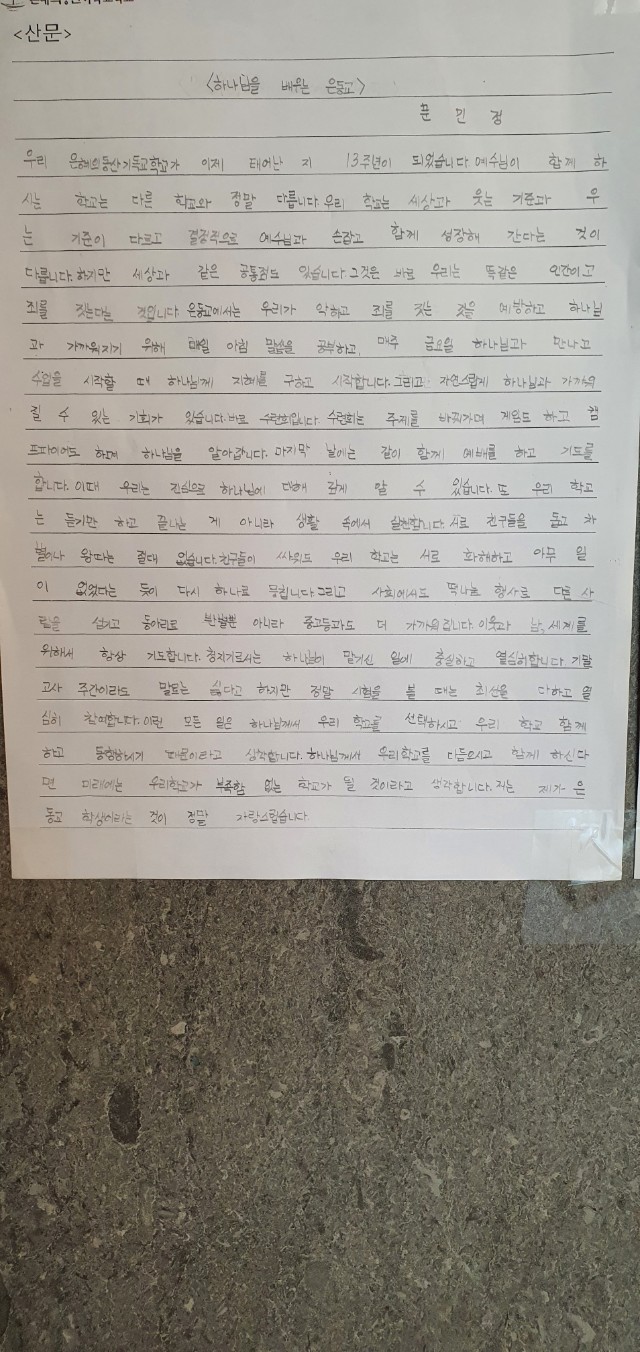 <산문>
<하나님을 배우는 은동교>
문 민 정
우리 은혜의동산기독교학교가 이제 태어난 지 13주년이 되었습니다. 예수님이 함께 하
시는 학교는 다른 학교와 정말 다릅니다. 우리 학교는 세상과 웃는 기준과 우
는 기준이 다르고 결정적으로 예수님과 손잡고 함께 성장해 간다는 것이
다릅니다. 하지만 세상과 같은 공통점도 있습니다. 그것은 바로 우리는 똑같은 인간이고
죄를 짓는다는 것입니다. 은동교에서는 우리가 악하고 죄를 짓는 것을 예방하고 하나님
과 가까워지기 위해 매일 아침 말씀을 공부하고, 매주 금요일 하나님과 만나고
수업을 시작할 때 하나님께 지혜를 구하고 시작합니다. 그리고 자연스럽게 하나님과 가까워
질 수 있는 기회가 있습니다. 바로 수련회입니다. 수련회는 주제를 바꿔가며 게임도 하고 캠
프파이어도 하며 하나님을 알아갑니다. 마지막 날에는 같이 함께 예배를 하고 기도를
합니다. 이때 우리는 진심으로 하나님에 대해 깊게 알 수 있습니다. 또 우리 학교
는 듣기만 하고 끝나는 게 아니라 생활 속에서 실천합니다. 서로 친구들을 돕고 차
별이나 왕따는 절대 없습니다. 친구들이 싸워도 우리 학교는 서로 화해하고 아무 일
이 없었다는 듯이 다시 하나로 뭉칩니다. 그리고 사회에서도 떡나눔 행사로 다른 사
람을 섬기고 동아리로 반별뿐 아니라 중고등과도 더 가까워집니다. 이웃과 남, 세계를
위해서 항상 기도합니다. 청지기로서는 하나님이 맡기신 일에 충실하고 열심히합니다. 기말
고사 주간이라도 말로는 싫다고 하지만 정말 시험을 볼 때는 최선을 다하고 열
심히 참여합니다. 이런 모든 일은 하나님께서 우리 학교를 선택하시고 우리 학교 함께
하고 동행하시기 때문이라고 생각합니다. 하나님께서 우리학교를 다듬으시고 함께 하신다
면 미래에는 우리학교가 부족함 없는 학교가 될 것이라고 생각합니다. 저는 제가 은
동교 학생이라는 것이 정말 자랑스럽습니다.